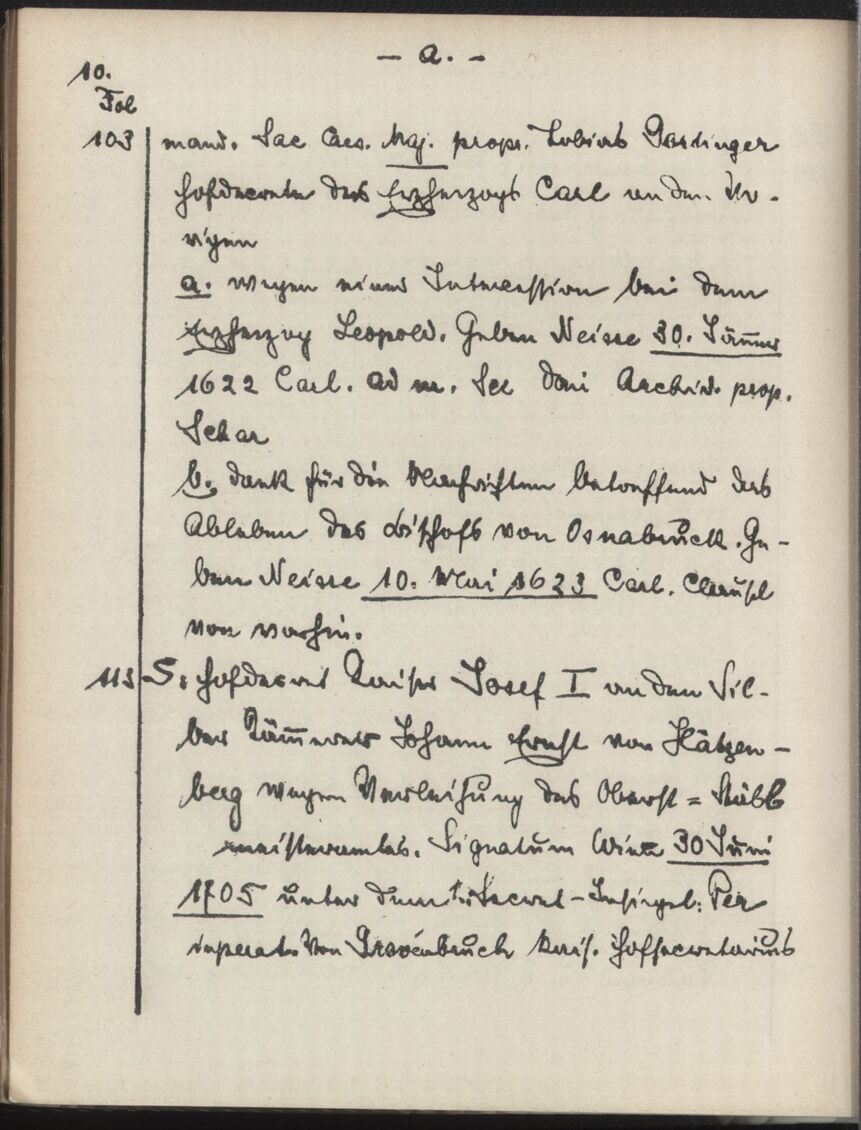 - a. -
10.
Fol
103 mand. Sac Caes. Maj. propr. Tobias Gertinger
Hofdecrete des Erzherzogs Carl an den Vo-
rigen
a. wegen einer Intercession bei dem
Erzherzog Leopold. Geben Neisse 30. Jänner
1622 Carl. Ad m. Ser dni Archid. prop.
Schar
b. dank für die Nachrichten betreffend das
Ableben des Bischofs von Osnabrück. Ge-
ben Neisse 10. Mai 1623 Carl. Clausel
von vorhin.
113 S: Hofdecret Kaiser Josef I an den Sil-
ber Kämmerer Johann Ernst von Hätzen-
berg wegen Verleihung des Oberst = Stäbl
meisteramtes. Signatum Wien 30 Juni
1705 unter dem Secret-Insigel: Per
imperat. Von kais. Hofsecretarius